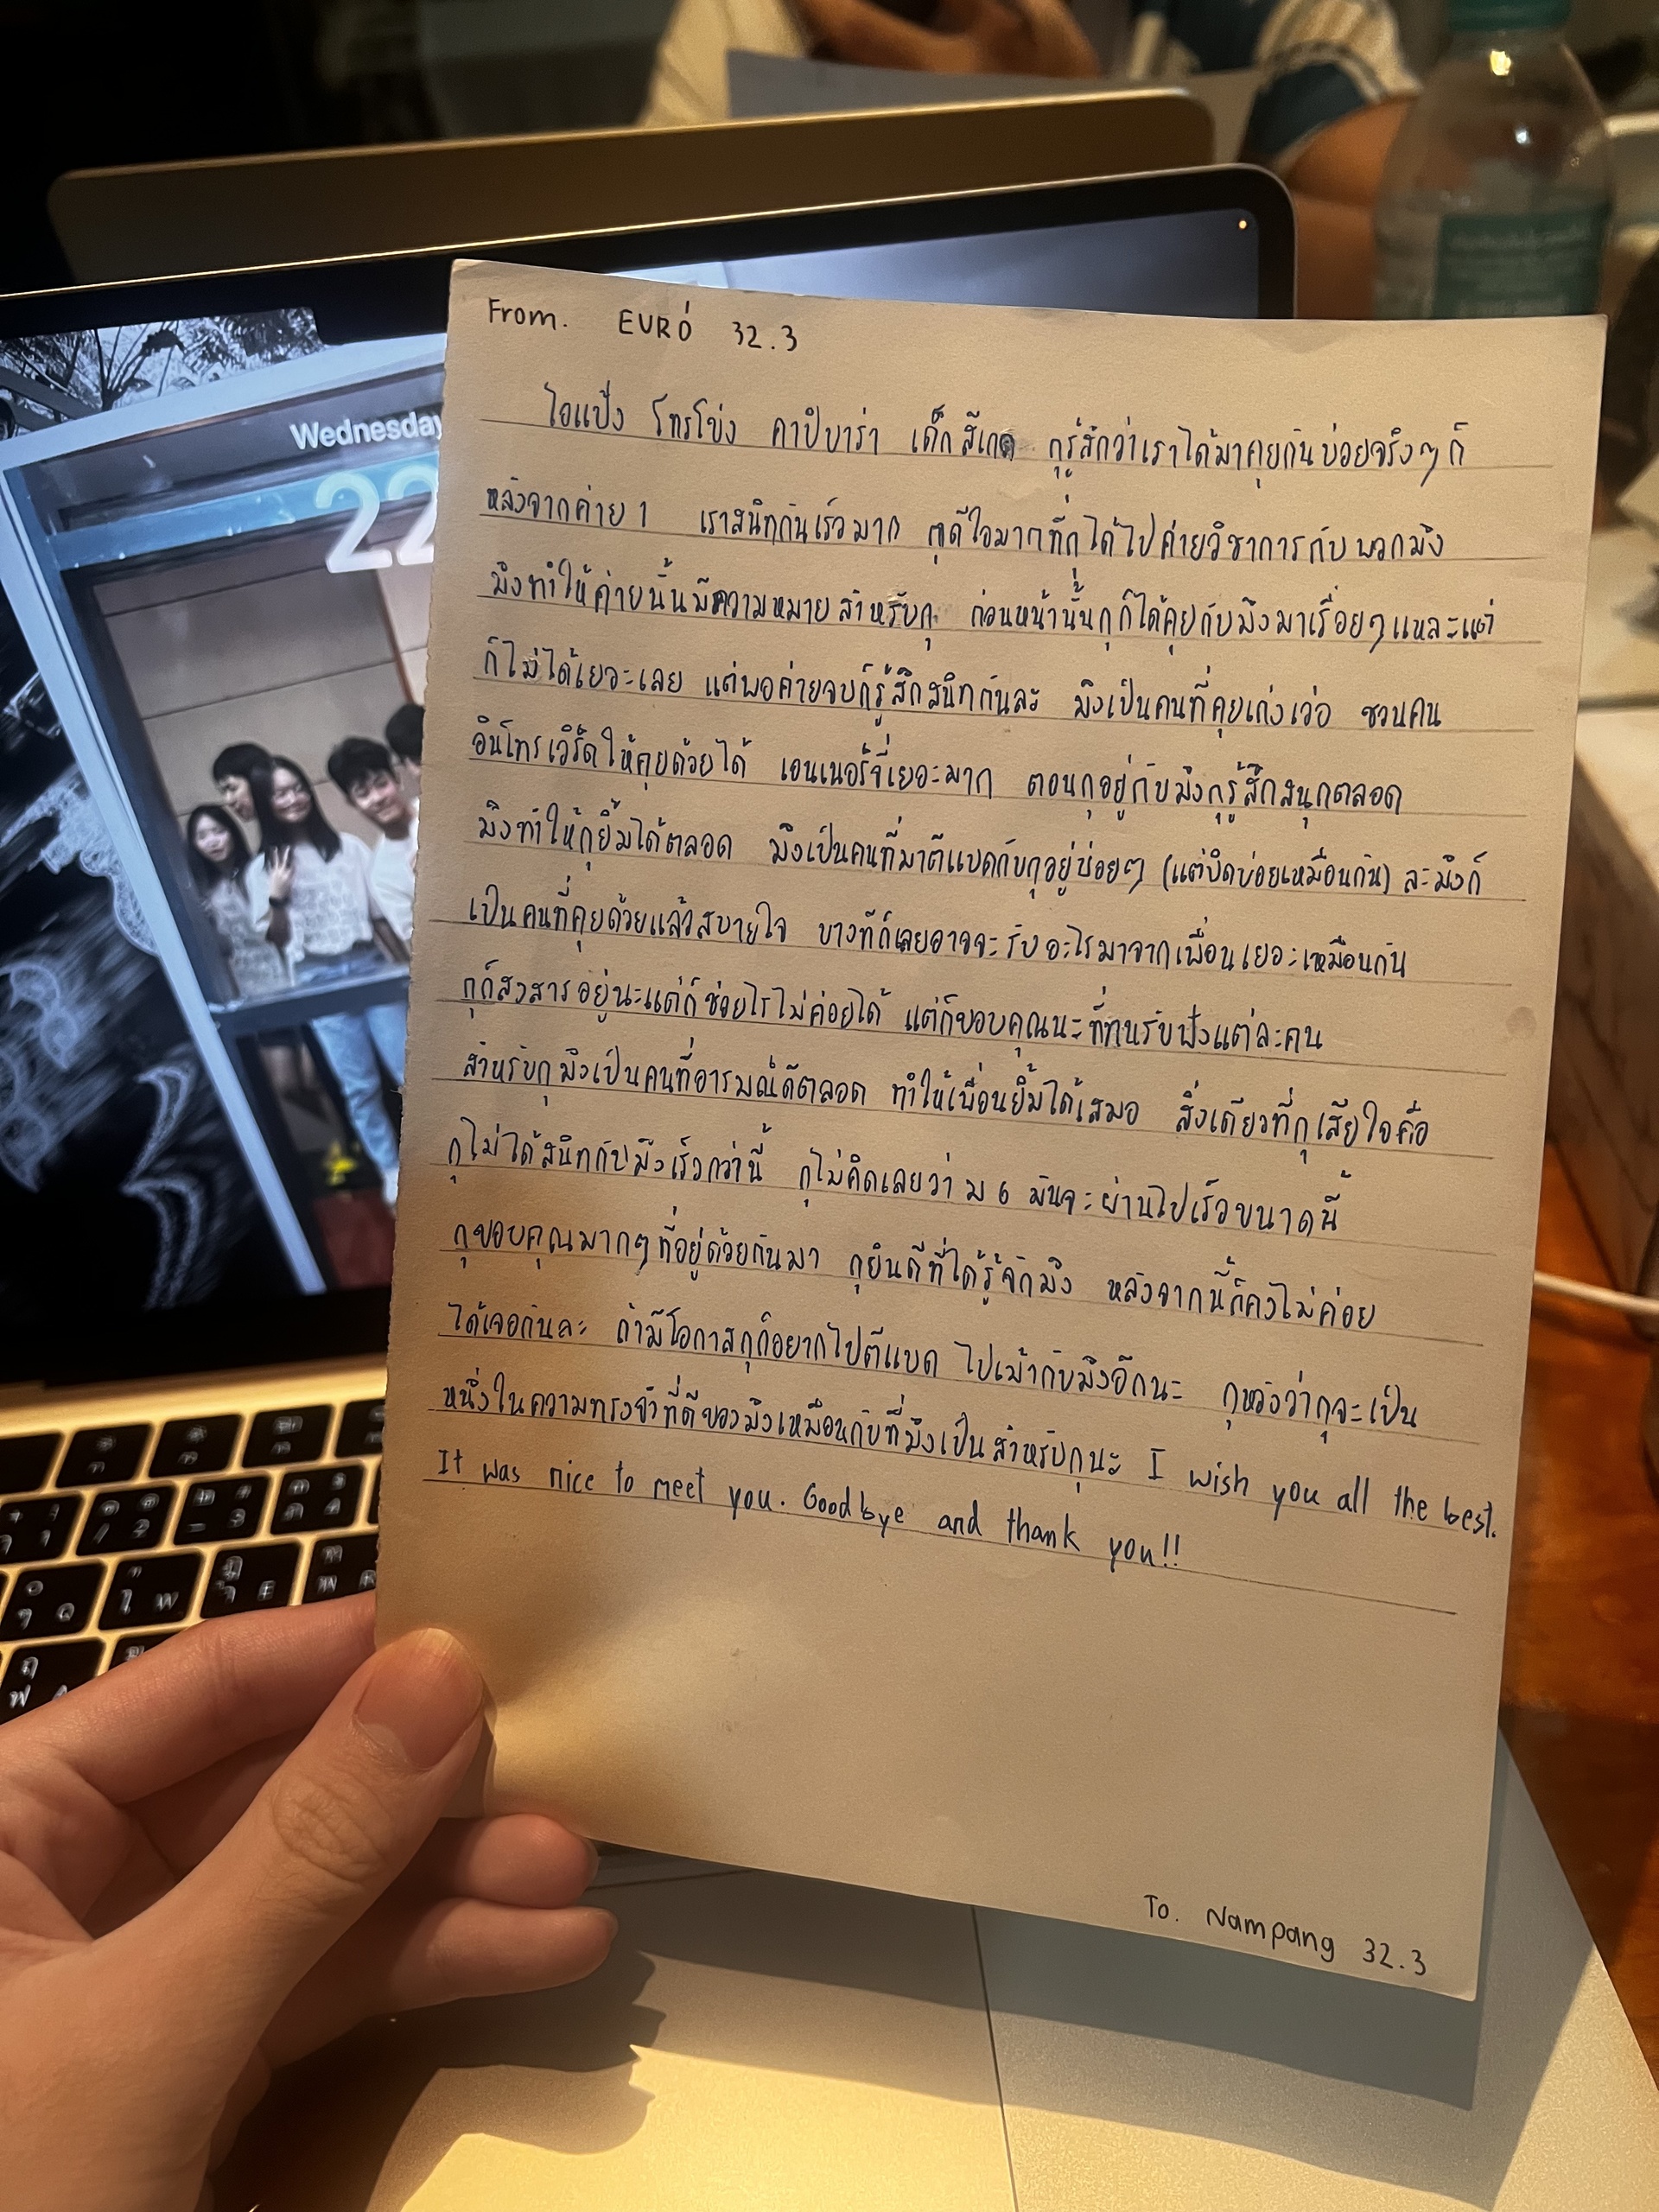 Wednesday
22
From. EURO 32.3
ไอแป้ง โทรโข่ง คาปิบาร่า เด็กสีเกด กุรู้สึกว่าเราได้มาคุยกันบ่อยจริงๆ ก็
หลังจากค่าย 1 เราสนิทกันเร็วมาก กุดีใจมากที่กุได้ไปค่ายวิชาการกับพวกมึง
มึงทำให้ค่ายนั้นมีความหมายสำหรับกุ ก่อนหน้านั้นกุก็ได้คุยกับมึงมาเรื่อยๆ แหละแต่
ก็ไม่ได้เยอะเลย แต่พอค่ายจบก็รู้สึกสนิทกันละ มึงเป็นคนที่คุยเก่งเว่อ ชวนคน
อินโทรเวิร์ดให้คุยด้วยได้ เอนเนอร์จี่เยอะมาก ตอนกุอยู่กับมึงกุรู้สึกสนุกตลอด
มึงทำให้กุยิ้มได้ตลอด มึงเป็นคนที่มาตีแบดกับกุอยู่บ่อยๆ (แต่บิดบ่อยเหมือนกัน) ละมึงก็
เป็นคนที่คุยด้วยแล้วสบายใจ บางทีก็เลยอาจจะรับอะไรมาจากเพื่อนเยอะเหมือนกัน
กุก็สงสารอยู่นะแต่ก็ช่วยไรไม่ค่อยได้ แต่ก็ขอบคุณนะที่ทนรับฟังแต่ละคน
สำหรับกุมึงเป็นคนที่อารมณ์ดีตลอด ทำให้เพื่อนยิ้มได้เสมอ สิ่งเดียวที่กุเสียใจคือ
กุไม่ได้สนิทกับมึงเร็วกว่านี้ กุไม่คิดเลยว่า ม 6 มันจะผ่านไปเร็วขนาดนี้
กุขอบคุณมากๆ ที่อยู่ด้วยกันมา กุยินดีที่ได้รู้จักมึง หลังจากนี้ก็คงไม่ค่อย
ได้เจอกันละ ถ้ามีโอกาสกุก็อยากไปตีแบด ไปเม้ากับมึงอีกนะ กุหวังว่ากุจะเป็น
หนึ่งในความทรงจำที่ดีของมึงเหมือนกับที่มึงเป็นสำหรับกุนะ I wish you all the best.
It was nice to meet you. Goodbye and thank you!!
To. Nampang 32.3